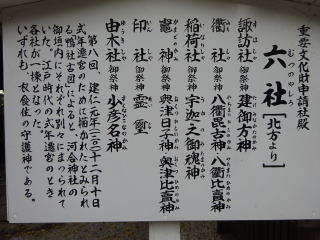 重要文化財申請社殿
六社[北方より]
むつのやしろ
諏訪社 御祭神 建御方神
衢社 御祭神 八衢毘古神 八衢比賣神
稲荷社 御祭神 宇迦之御魂神
竈神 御祭神 奥津日子神 奥津比賣神
印社 御祭神 霊璽
由木社 御祭神 少彦名神
第八回、建仁元年(一二〇一)十二月十日
式年遷宮のために描かれたとみられ
る鴨社古図によると、河合神社の
御垣内にそれぞれ別々にまつられて
いた。江戸時代の式年遷宮のとき
各社が一棟となった。
いずれも、衣食住の守護神である。